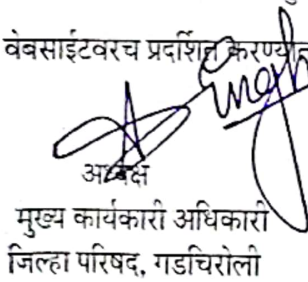 वेबसाईटवरच प्रदर्शित करण्यात
अध्यक्ष
मुख्य कार्यकारी अधिकारी
जिल्हा परिषद, गडचिरोली